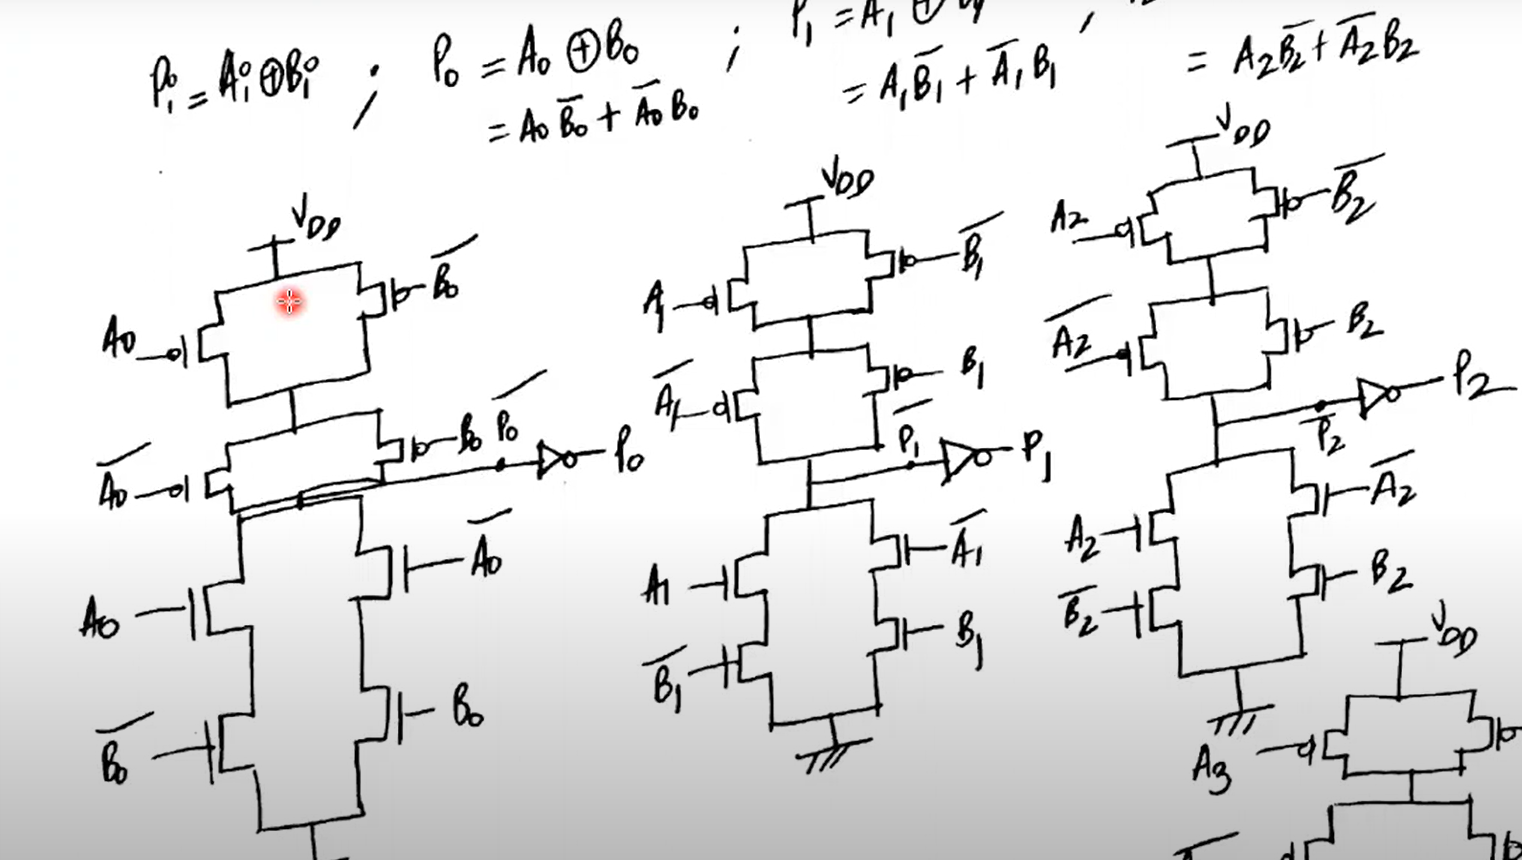 Pᵢ = Aᵢ ⊕ Bᵢ ; P₀ = A₀ ⊕ B₀ ; P₁ = A₁ ⊕ B₁ ;
= A₀B̅₀ + A̅₀B₀
= A₁B̅₁ + A̅₁B₁
= A₂B̅₂ + A̅₂B₂
V_DD
A₀
B̅₀
A̅₀
B₀
P̅₀
P₀
A₀
A̅₀
B̅₀
B₀
V_DD
A₁
B̅₁
A̅₁
B₁
P̅₁
P₁
A₁
A̅₁
B̅₁
B₁
V_DD
A₂
B̅₂
A̅₂
B₂
P̅₂
P₂
A₂
A̅₂
B̅₂
B₂
V_DD
A₃